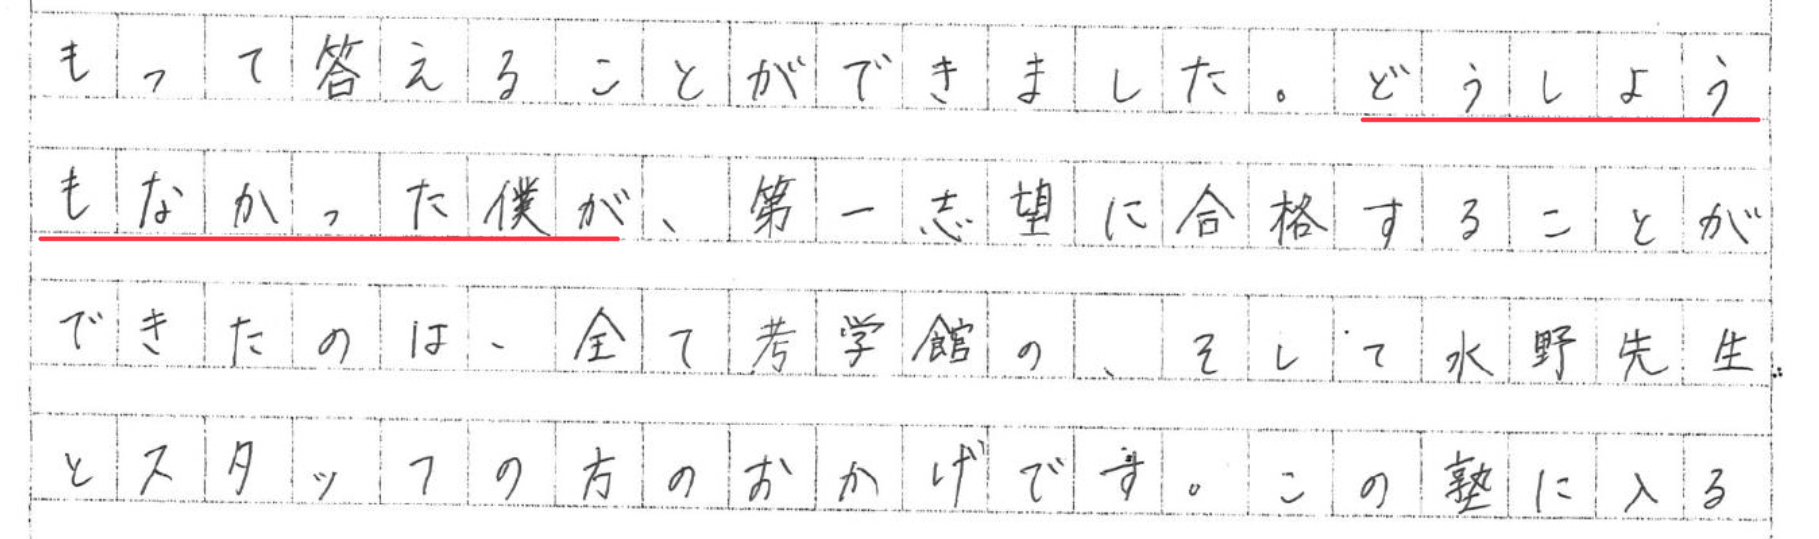 もって答えることができました。どうしよう
もなかった僕が、第一志望に合格することが
できたのは、全て考学館の、そして水野先生
とスタッフの方のおかげです。この塾に入る